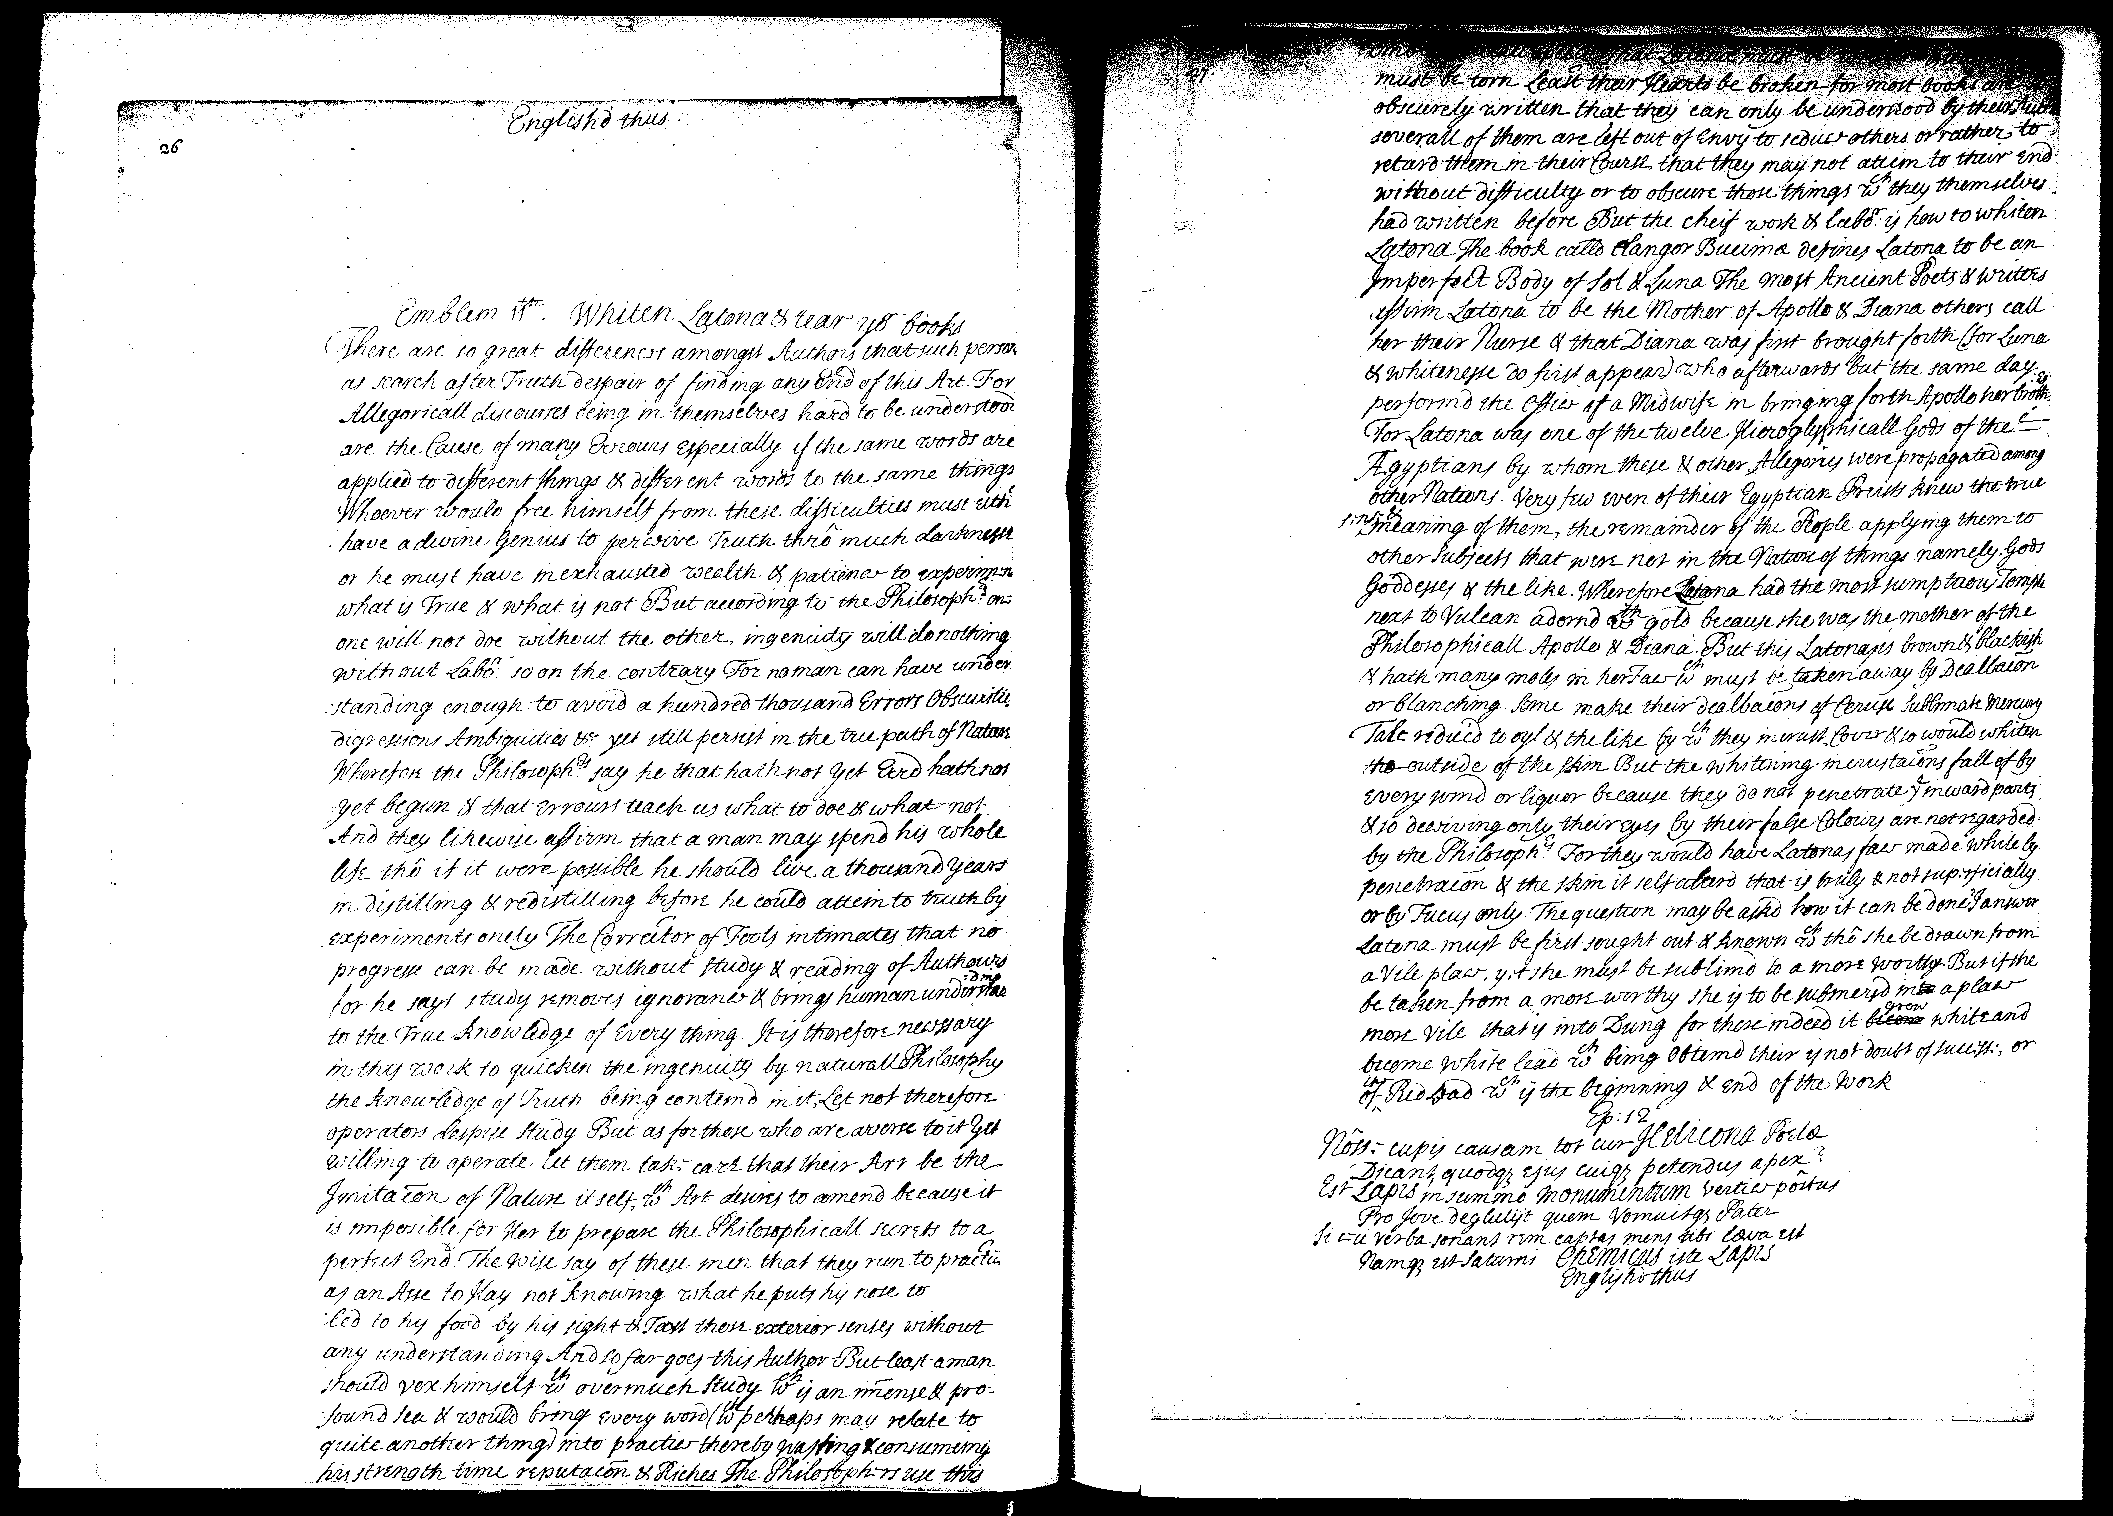 Englishd thus
26
Emblem 11th. Whiten Latona & tear yor books
There are so great differences amongst Authors that such person
as search after Truth despair of finding any End of this Art. For
Allegoricall discourses being in themselves hard to be understood
are the Cause of many Errours Especially if the same words are
applied to different things & different words to the same things
Whoever would free himself from these difficulties must eith
have a divine Genius to perceive Truth thrô much darknesse
or he must have inexhausted wealth & patience to experim
what is True & what is not But according to the Philosophrs
one will not doe without the other, ingenuity will do nothing
without Labor so on the contrary For no man can have under
standing enough to avoid a hundred thousand Errors Obscuritie
digressions Ambiguities &c yet still persist in the true path of Nature
Wherefore the Philosophrs say he that hath not yet Err'd hath not
yet begun & that Errours teach us what to doe & what not
And they likewise affirm that a man may spend his whole
life thô if it were possible he should live a thousand years
in distilling & redistilling before he could attein to truth by
experiments onely The Correctior of Fools intimates that no
progresse can be made without study & reading of Authours
for he says study removes ignorance & brings human understanding
to the True knowledge of Every thing. It is therefore necessary
in this work to quicken the ingenuity by naturall Philosophy
the knowledge of Truth being conteind in it, Let not therefore
operators despise Study But as for those who are averse to it yet
willing to operate let them take care that their Art be the
Imitacõn of Nature it self, wch Art desires to amend because it
is imposible for Her to prepare the Philosophicall secrets to a
perfect End. The wise say of these men that they run to practic
as an Asse to Hay not knowing what he puts his nose to
led to his food by his sight & Tast those exterior senses without
any understanding And so far goes this Author But least a man
should vex himself wth overmuch Study wch is an im̄ense & pro-
found sea & would bring every word (wch perhaps may relate to
quite another thing) into practice thereby wasting & consumeing
his strength time reputacõn & Riches The Philosophers use this
27
must be torn Least their Hearts be broken for most books are
obscurely written that they can only be understood by their
severall of them are left out of Envy to seduce others or rather to
retard them in their Course that they may not attein to their End
without difficulty or to obscure those things wch they themselves
had written before But the cheif work & labor is how to whiten
Latona The book calld Clangor Buccina defines Latona to be an
Imperfect Body of Sol & Luna The most Ancient Poets & writers
affirm Latona to be the Mother of Apollo & Diana others call
her their Nurse & that Diana was first brought forth (for Luna
& whitenesse do first appear) who afterwards but the same day
performd the Office of a Midwife in bringing forth Apollo her brother
For Latona was one of the twelve Hieroglyphicall Gods of the
Ægyptians by whom these & other Allegories were propagated among
other Nations. Very few even of their Egyptian Preists knew the true
meaning of them, the remainder of the People applying them to
other Subjects that were not in the Nature of things namely Gods
Goddesses & the like. Wherefore Latona had the most sumptuous Temple
next to Vulcan adornd wth gold because she was the mother of the
Philosophicall Apollo & Diana. But this Latona is brown & blackish
& hath many moles in her Face wch must be taken away by Dealbacõn
or blanching. Some make their dealbacõns of Ceruse Sublimate Mercury
Talc reduced to oyl & the like by wch they incrust Cover & so would whiten
the outside of the skin But the whitening incrustacõns fall of by
every wind or liquor because they do not penetrate ye inward parts
& so deceiving only their eyes by their false Colours are not regarded
by the Philosophrs For they would have Latona's face made white by
penetracõn & the skin it self alterd that is truly & not superficially
or by Fucus only. The question may be askd how it can be done? I answer
Latona must be first sought out & known wch thô she be drawn from
a vile place, yet she must be sublimd to a more worthy But if she
be taken from a more worthy she is to be submersd into a place
more vile that is into Dung for there indeed it grow white and
become White lead wch being Obteind their is not doubt of success, or
of Red Lead wch is the beginning & end of the Work
Ep: 12
Nôsse cupis causam tot cur Helicona Poetæ
Dicant, quodq; ejus cuiq; petendus apex?
Est Lapis in summo monumentum vertice pôstus
Pro Jove deglutijt quem vomuitq; Pater
Si cū verba sonant rem captas mens tibi læva est
Namq; est Saturni Chemicus iste Lapis
Englishd thus